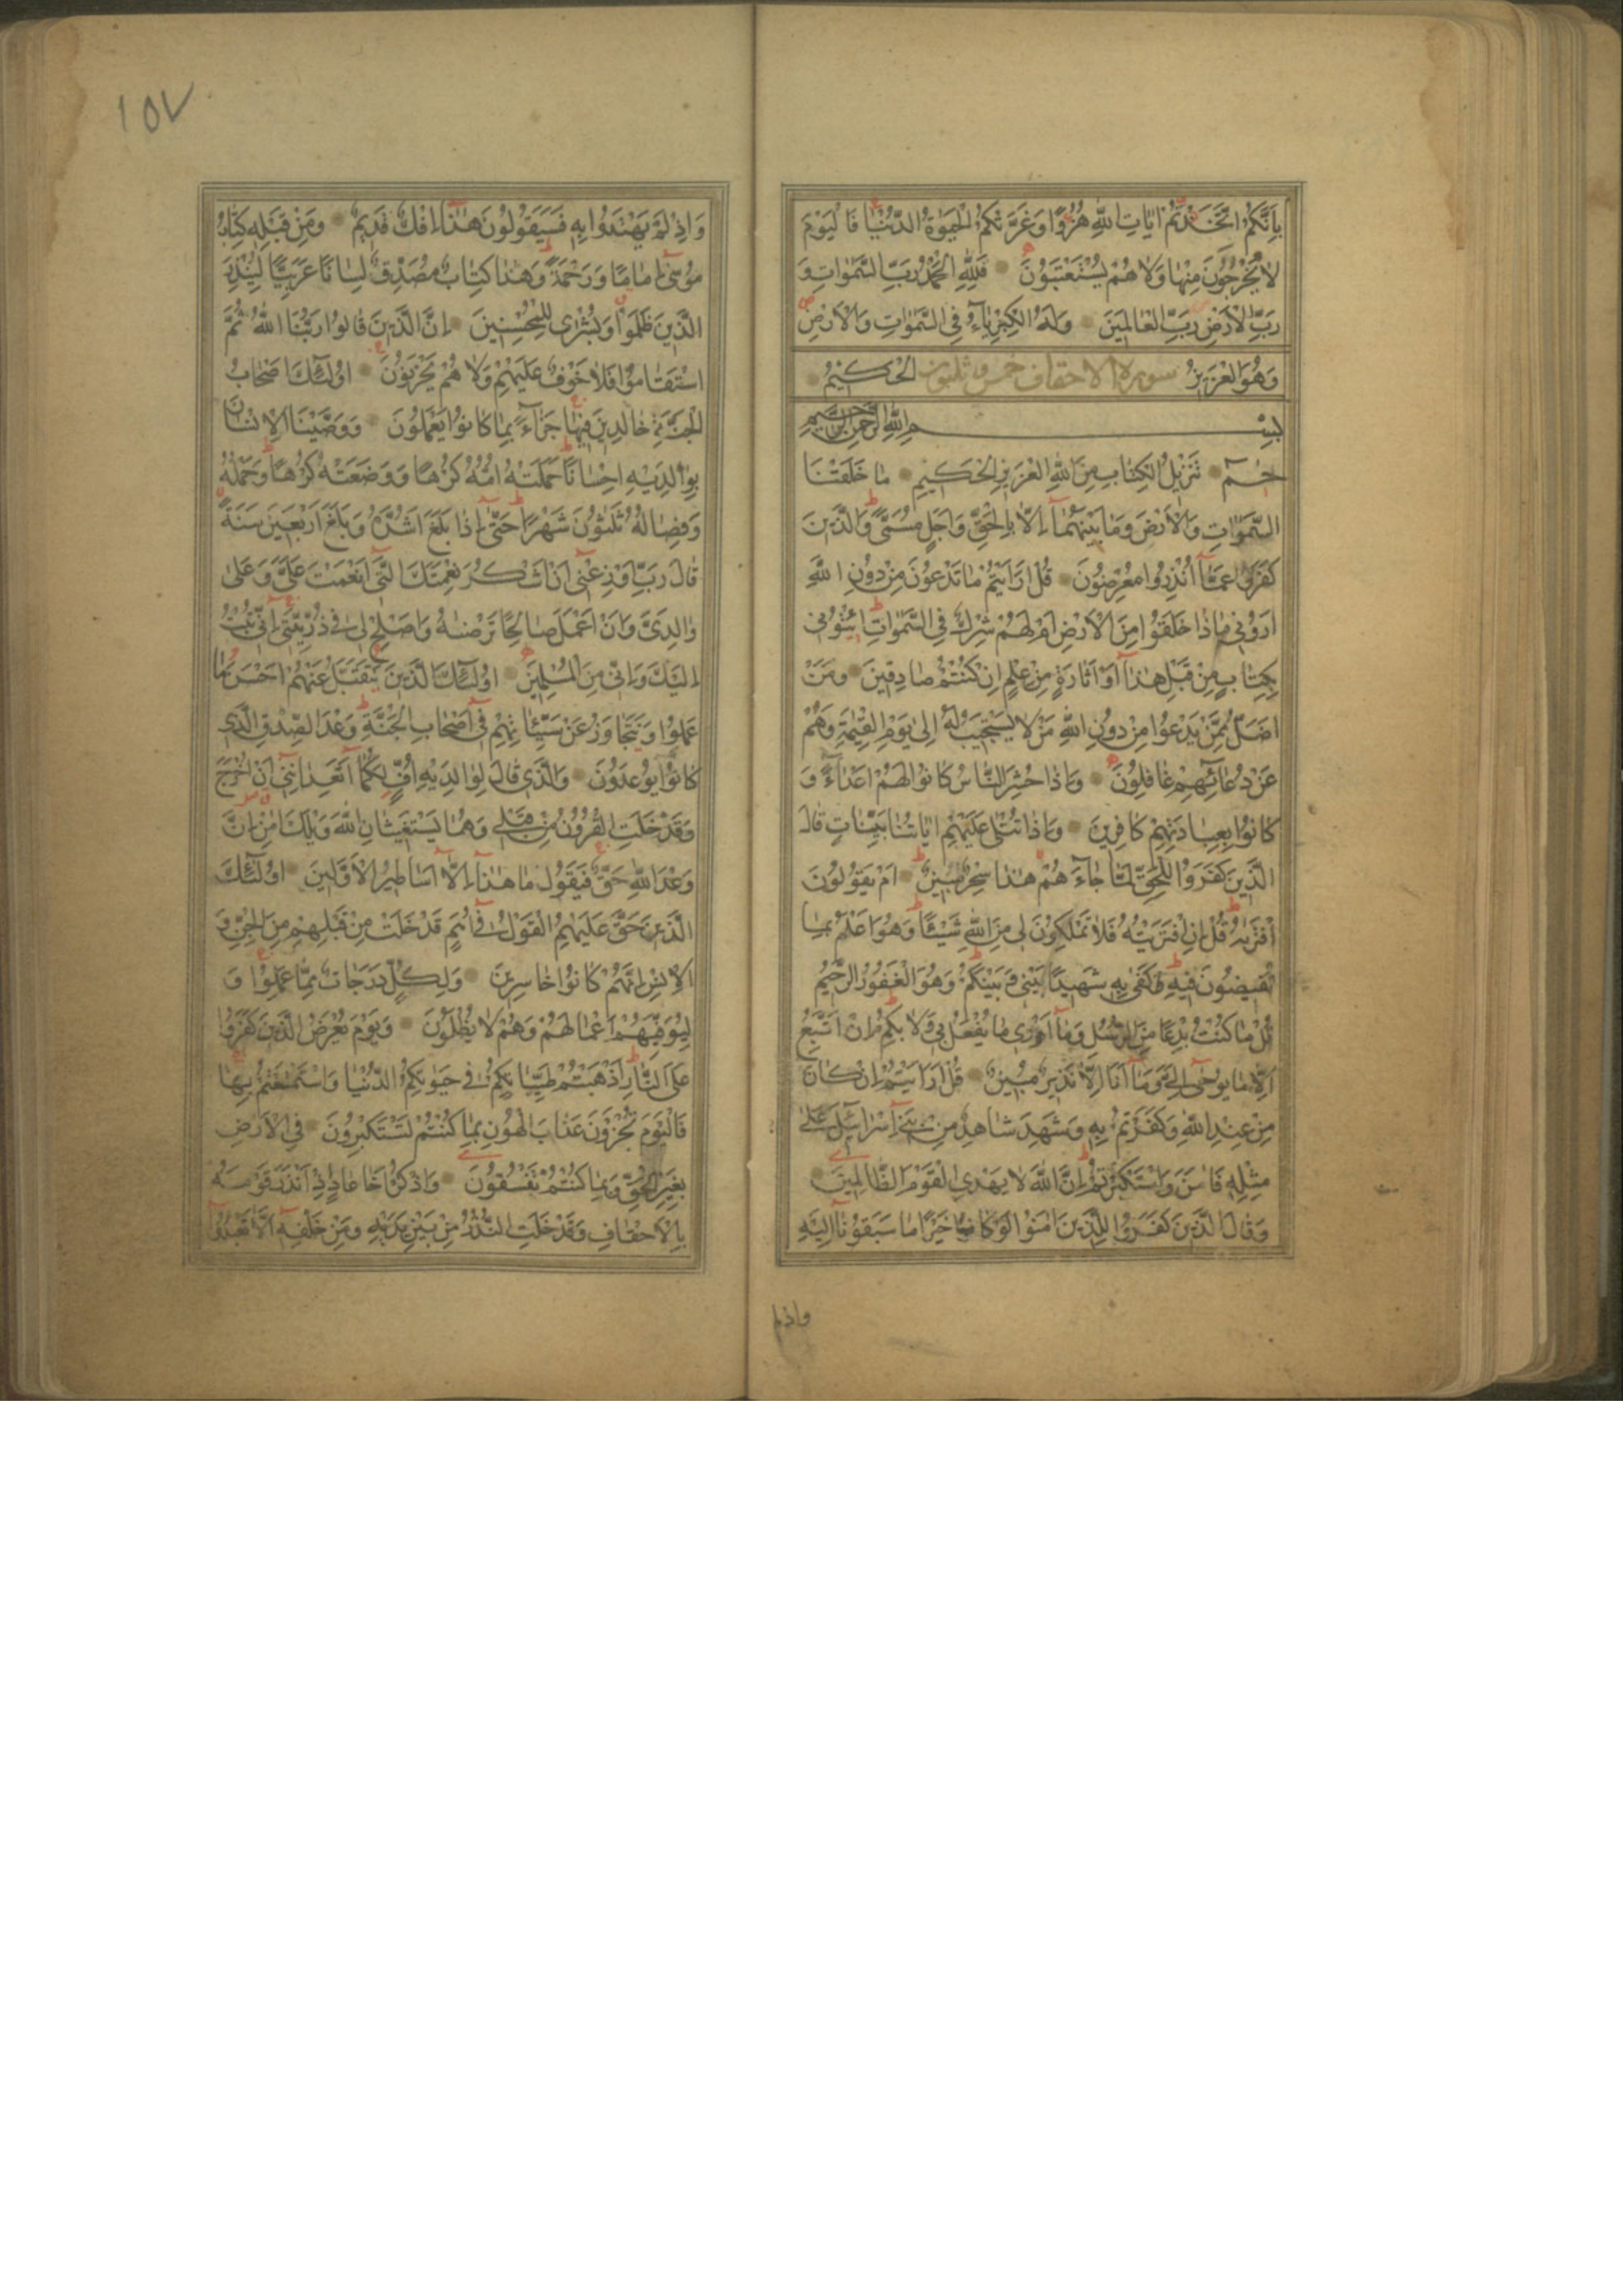 بِاَنَّكُمُ اتَّخَذْتُمْ اٰيَاتِ اللّٰهِ هُزُوًا وَغَرَّتْكُمُ الْحَيٰوةُ الدُّنْيَا فَالْيَوْمَ
لَا يُخْرَجُونَ مِنْهَا وَلَا هُمْ يُسْتَعْتَبُونَ فَلِلّٰهِ الْحَمْدُ رَبِّ السَّمٰوَاتِ وَ
رَبِّ الْاَرْضِ رَبِّ الْعَالَمِينَ وَلَهُ الْكِبْرِيَآءُ فِى السَّمٰوَاتِ وَالْاَرْضِ
وَهُوَ الْعَزِيزُ سورة الاحقاف خمس وثلثون الْحَكِيمُ
بِسْمِ اللّٰهِ الرَّحْمٰنِ الرَّحِيمِ
حٰمٓ تَنْزِيلُ الْكِتَابِ مِنَ اللّٰهِ الْعَزِيزِ الْحَكِيمِ مَا خَلَقْنَا
السَّمٰوَاتِ وَالْاَرْضَ وَمَا بَيْنَهُمَآ اِلَّا بِالْحَقِّ وَاَجَلٍ مُسَمًّى وَالَّذِينَ
كَفَرُوا عَمَّآ اُنْذِرُوا مُعْرِضُونَ قُلْ اَرَاَيْتُمْ مَا تَدْعُونَ مِنْ دُونِ اللّٰهِ
اَرُونِى مَاذَا خَلَقُوا مِنَ الْاَرْضِ اَمْ لَهُمْ شِرْكٌ فِى السَّمٰوَاتِ ائْتُونِى
بِكِتَابٍ مِنْ قَبْلِ هٰذَآ اَوْ اَثَارَةٍ مِنْ عِلْمٍ اِنْ كُنْتُمْ صَادِقِينَ وَمَنْ
اَضَلُّ مِمَّنْ يَدْعُوا مِنْ دُونِ اللّٰهِ مَنْ لَا يَسْتَجِيبُ لَهُٓ اِلٰى يَوْمِ الْقِيٰمَةِ وَهُمْ
عَنْ دُعَآئِهِمْ غَافِلُونَ وَاِذَا حُشِرَ النَّاسُ كَانُوا لَهُمْ اَعْدَآءً وَ
كَانُوا بِعِبَادَتِهِمْ كَافِرِينَ وَاِذَا تُتْلٰى عَلَيْهِمْ اٰيَاتُنَا بَيِّنَاتٍ قَالَ
الَّذِينَ كَفَرُوا لِلْحَقِّ لَمَّا جَآءَهُمْ هٰذَا سِحْرٌ مُبِينٌ اَمْ يَقُولُونَ
افْتَرٰيهُ قُلْ اِنِ افْتَرَيْتُهُ فَلَا تَمْلِكُونَ لِى مِنَ اللّٰهِ شَيْئًا وَهُوَ اَعْلَمُ بِمَا
تُفِيضُونَ فِيهِ كَفٰى بِهِ شَهِيدًا بَيْنِى وَبَيْنَكُمْ وَهُوَ الْغَفُورُ الرَّحِيمُ
قُلْ مَا كُنْتُ بِدْعًا مِنَ الرُّسُلِ وَمَآ اَدْرِى مَا يُفْعَلُ بِى وَلَا بِكُمْ اِنْ اَتَّبِعُ
اِلَّا مَا يُوحٰٓى اِلَىَّ وَمَآ اَنَا اِلَّا نَذِيرٌ مُبِينٌ قُلْ اَرَاَيْتُمْ اِنْ كَانَ
مِنْ عِنْدِ اللّٰهِ وَكَفَرْتُمْ بِهِ وَشَهِدَ شَاهِدٌ مِنْ بَنِىٓ اِسْرَآئِيلَ عَلٰى
مِثْلِهِ فَاٰمَنَ وَاسْتَكْبَرْتُمْ اِنَّ اللّٰهَ لَا يَهْدِى الْقَوْمَ الظَّالِمِينَ
وَقَالَ الَّذِينَ كَفَرُوا لِلَّذِينَ اٰمَنُوا لَوْ كَانَ خَيْرًا مَا سَبَقُونَآ اِلَيْهِ
واذ لم
١٥٧
وَاِذْ لَمْ يَهْتَدُوا بِهِ فَسَيَقُولُونَ هٰذَآ اِفْكٌ قَدِيمٌ وَمِنْ قَبْلِهِ كِتَابُ
مُوسٰٓى اِمَامًا وَرَحْمَةً وَهٰذَا كِتَابٌ مُصَدِّقٌ لِسَانًا عَرَبِيًّا لِيُنْذِرَ
الَّذِينَ ظَلَمُوا وَبُشْرٰى لِلْمُحْسِنِينَ اِنَّ الَّذِينَ قَالُوا رَبُّنَا اللّٰهُ ثُمَّ
اسْتَقَامُوا فَلَا خَوْفٌ عَلَيْهِمْ وَلَا هُمْ يَحْزَنُونَ اُولٰٓئِكَ اَصْحَابُ
الْجَنَّةِ خَالِدِينَ فِيهَا جَزَآءً بِمَا كَانُوا يَعْمَلُونَ وَوَصَّيْنَا الْاِنْسَانَ
بِوَالِدَيْهِ اِحْسَانًا حَمَلَتْهُ اُمُّهُ كُرْهًا وَوَضَعَتْهُ كُرْهًا وَحَمْلُهُ
وَفِصَالُهُ ثَلٰثُونَ شَهْرًا حَتّٰٓى اِذَا بَلَغَ اَشُدَّهُ وَبَلَغَ اَرْبَعِينَ سَنَةً
قَالَ رَبِّ اَوْزِعْنِىٓ اَنْ اَشْكُرَ نِعْمَتَكَ الَّتِىٓ اَنْعَمْتَ عَلَىَّ وَعَلٰى
وَالِدَىَّ وَاَنْ اَعْمَلَ صَالِحًا تَرْضٰيهُ وَاَصْلِحْ لِى فِى ذُرِّيَّتِىٓ اِنِّى تُبْتُ
اِلَيْكَ وَاِنِّى مِنَ الْمُسْلِمِينَ اُولٰٓئِكَ الَّذِينَ يُتَقَبَّلُ عَنْهُمْ اَحْسَنُ مَا
عَمِلُوا وَيُتَجَاوَزُ عَنْ سَيِّئَاتِهِمْ فِىٓ اَصْحَابِ الْجَنَّةِ وَعْدَ الصِّدْقِ الَّذِى
كَانُوا يُوعَدُونَ وَالَّذِى قَالَ لِوَالِدَيْهِ اُفٍّ لَكُمَآ اَتَعِدَانِنِىٓ اَنْ اُخْرَجَ
وَقَدْ خَلَتِ الْقُرُونُ مِنْ قَبْلِى وَهُمَا يَسْتَغِيثَانِ اللّٰهَ وَيْلَكَ اٰمِنْ اِنَّ
وَعْدَ اللّٰهِ حَقٌّ فَيَقُولُ مَا هٰذَآ اِلَّآ اَسَاطِيرُ الْاَوَّلِينَ اُولٰٓئِكَ
الَّذِينَ حَقَّ عَلَيْهِمُ الْقَوْلُ فِىٓ اُمَمٍ قَدْ خَلَتْ مِنْ قَبْلِهِمْ مِنَ الْجِنِّ وَ
الْاِنْسِ اِنَّهُمْ كَانُوا خَاسِرِينَ وَلِكُلٍّ دَرَجَاتٌ مِمَّا عَمِلُوا وَ
لِيُوَفِّيَهُمْ اَعْمَالَهُمْ وَهُمْ لَا يُظْلَمُونَ وَيَوْمَ يُعْرَضُ الَّذِينَ كَفَرُوا
عَلَى النَّارِ اَذْهَبْتُمْ طَيِّبَاتِكُمْ فِى حَيٰوتِكُمُ الدُّنْيَا وَاسْتَمْتَعْتُمْ بِهَا
فَالْيَوْمَ تُجْزَوْنَ عَذَابَ الْهُونِ بِمَا كُنْتُمْ تَسْتَكْبِرُونَ فِى الْاَرْضِ
بِغَيْرِ الْحَقِّ وَبِمَا كُنْتُمْ تَفْسُقُونَ وَاذْكُرْ اَخَا عَادٍ اِذْ اَنْذَرَ قَوْمَهُ
بِالْاَحْقَافِ وَقَدْ خَلَتِ النُّذُرُ مِنْ بَيْنِ يَدَيْهِ وَمِنْ خَلْفِهِٓ اَلَّا تَعْبُدُوٓا